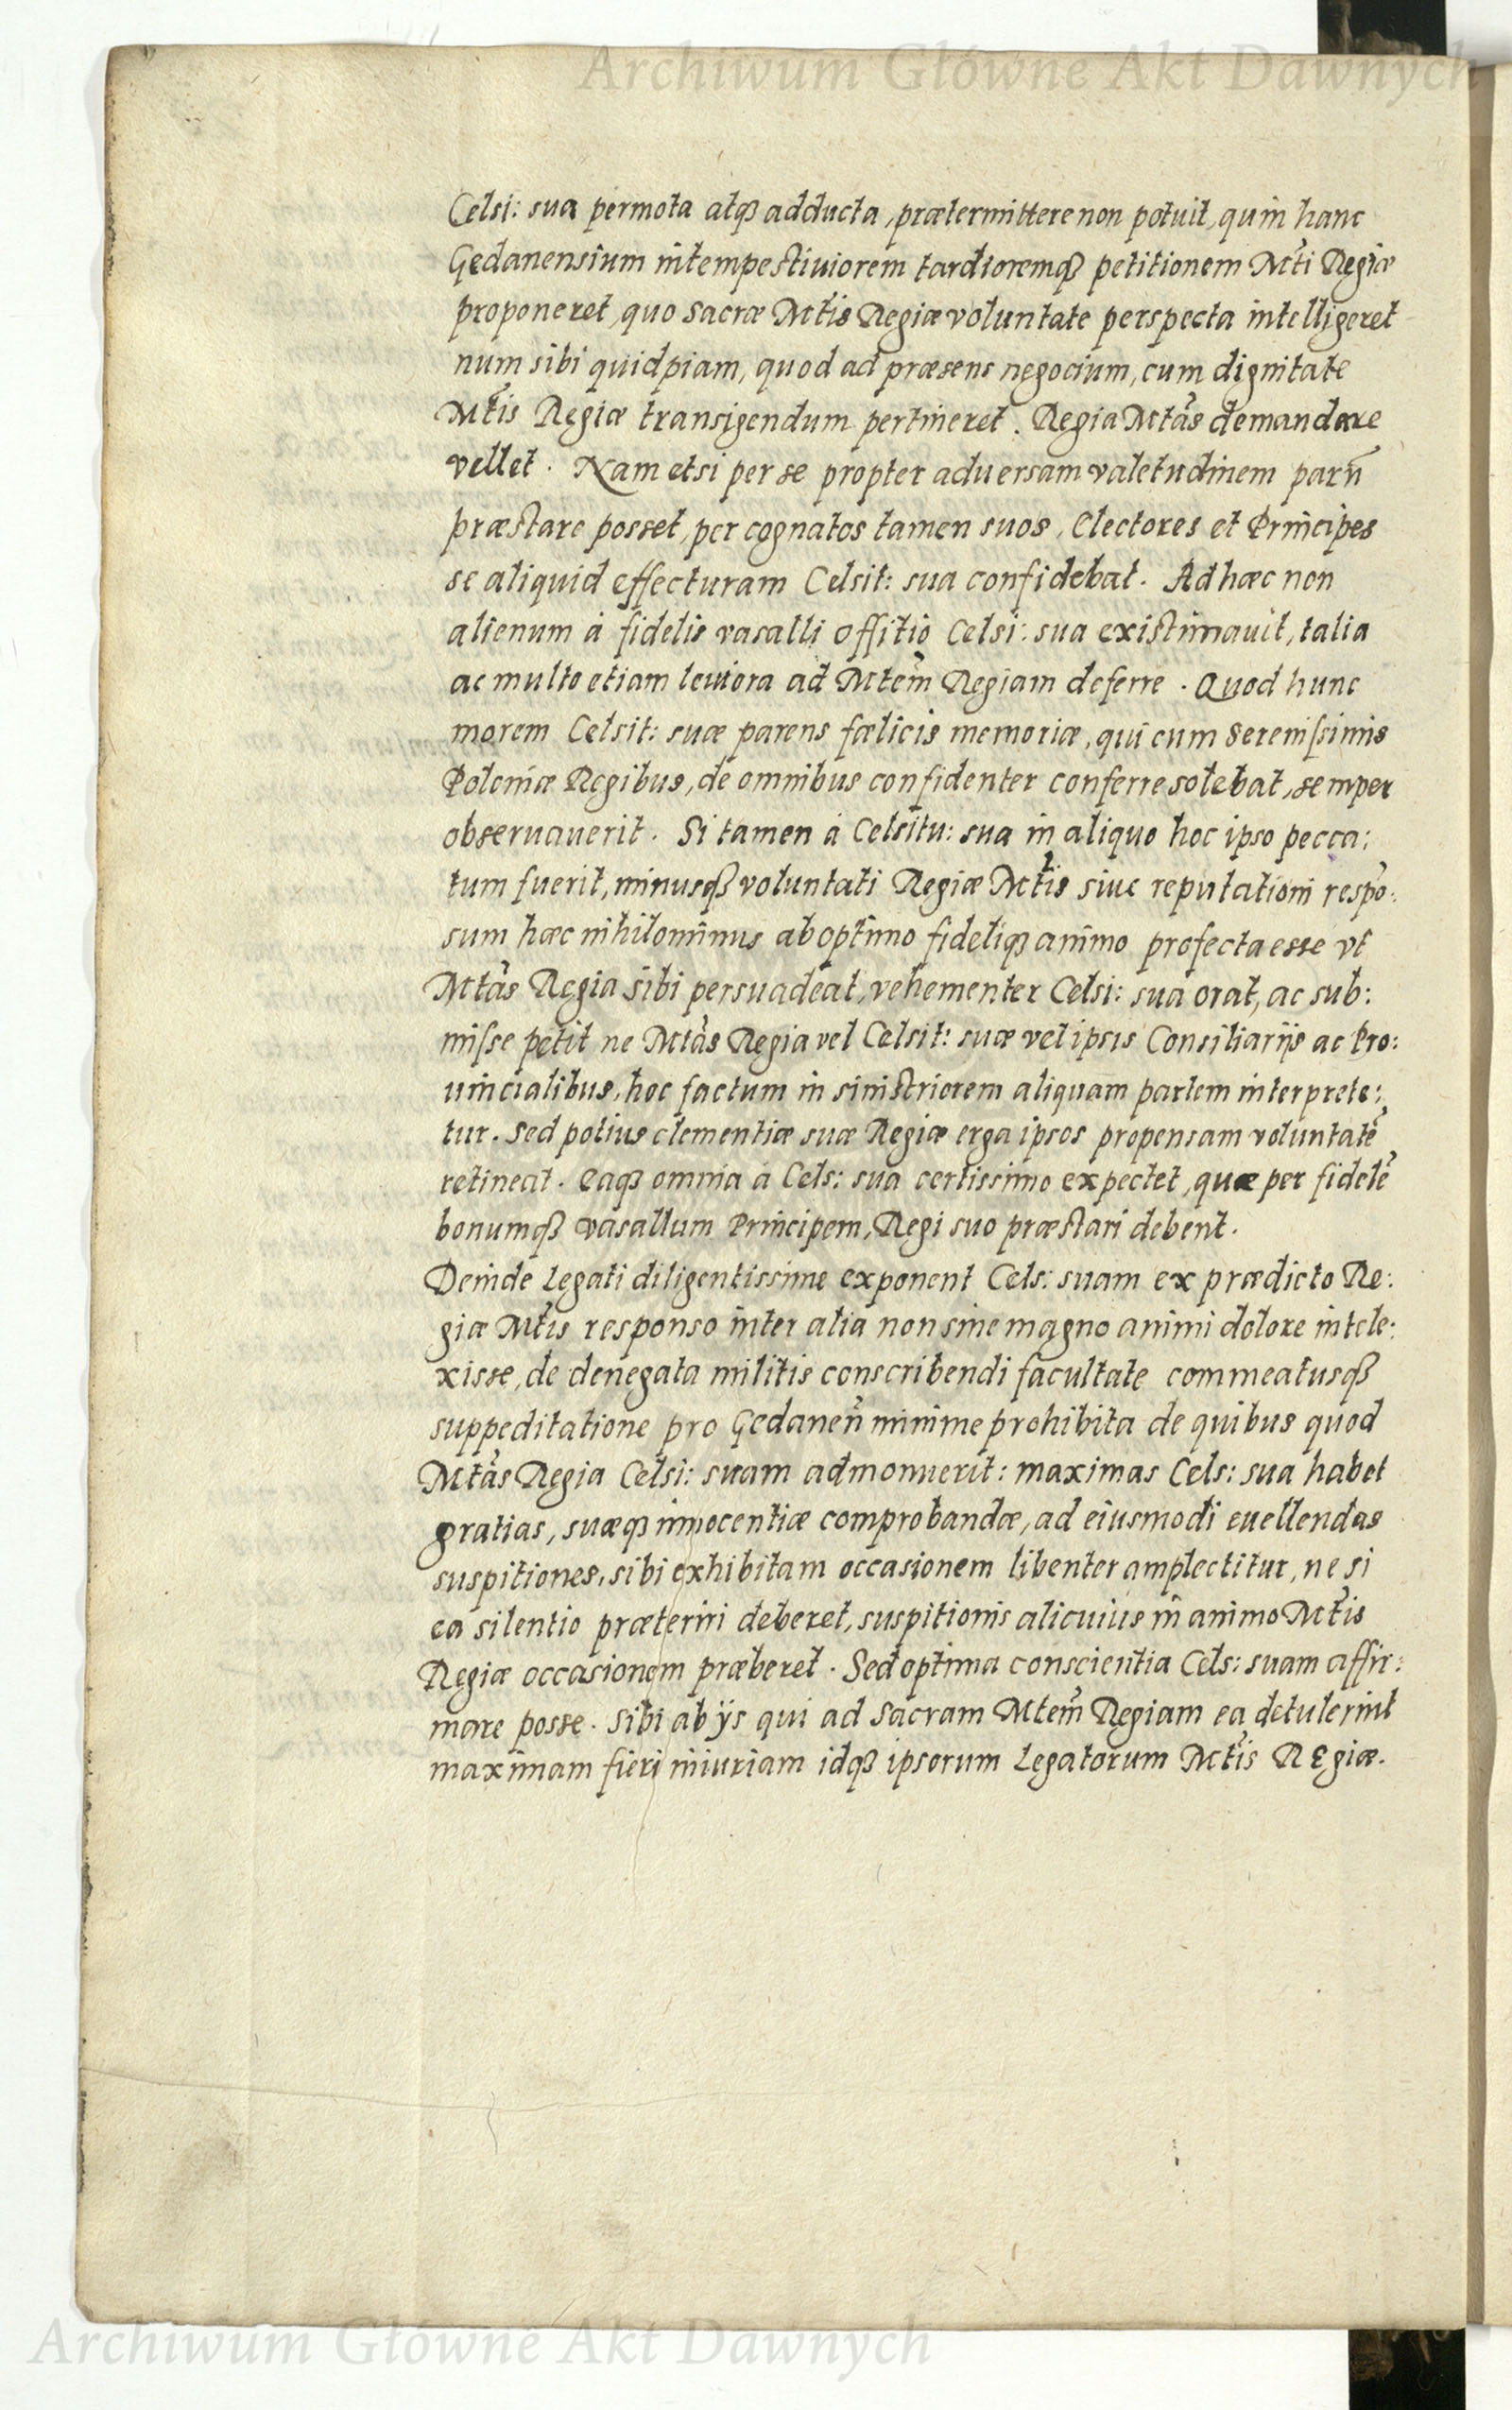 Archiwum Główne Akt Dawnych
Celsi: sua permota atq́ꝫ adducta, prætermittere non potuit, quin hanc
Gedanensium intempestiuiorem tardioremqꝫ petitionem Mti Regiæ
proponeret, quo Sacræ Mtis Regiæ voluntate perspecta intelligeret
num sibi quidpiam, quod ad præsens negocium, cum dignitate
Mtis Regiæ transigendum pertineret. Regia Mtas demandare
vellet. Nam etsi per se propter aduersam valetudinem parũ
præstare posset, per cognatos tamen suos, Electores et Principes
se aliquid effecturam Celsit: sua confidebat. Ad hæc non
alienum à fidelis vasalli offitio Celsi: sua existimauit, talia
ac multo etiam leuiora ad Mtem Regiam deferre. Quod hunc
morem Celsit: suæ parens fœlicis memoriæ, qui cum Serenissimis
Poloniæ Regibus, de omnibus confidenter conferre solebat, semper
obseruauerit. Si tamen à Celsitu: sua in aliquo hoc ipso pecca:
tum fuerit, minusqꝫ voluntati Regiæ Mtis siue reputationi respõ:
sum hæc nihilominus ab optimo fideliqꝫ animo profecta esse vt
Mtas Regia sibi persuadeat, vehementer Celsi: sua orat, ac sub:
misse petit ne Mtas Regia vel Celsit: suæ vel ipsis Consiliarijs ac Pro:
uincialibus, hoc factum in sinistriorem aliquam partem interprete:
tur. Sed potius clementiæ suæ Regiæ erga ipsos propensam voluntatẽ
retineat. Eaqꝫ omnia à Cels: sua certissimo expectet, quæ per fidelẽ
bonumqꝫ vasallum Principem, Regi suo præstari debent.
Deinde Legati diligentissime exponent Cels: suam ex prædicto Re:
giæ Mtis responso inter alia non sine magno animi dolore intele:
xisse, de denegata militis conscribendi facultate commeatusqꝫ
suppeditatione pro Gedaneñ minime prohibita de quibus quod
Mtas Regia Celsi: suam admonuerit: maximas Cels: sua habet
gratias, suæqꝫ innocentiæ comprobandæ, ad eiusmodi euellendas
suspitiones, sibi exhibitam occasionem libenter amplectitur, ne si
ea silentio præteriri deberet, suspitionis alicuius in animo Mtis
Regiæ occasionem præberet. Sed optima conscientia Cels: suam affir:
mare posse. Sibi ab ijs qui ad Sacram Mtem Regiam ea detulerint
maximam fieri iniuriam idqꝫ ipsorum Legatorum Mtis Regiæ.
Archiwum Główne Akt Dawnych